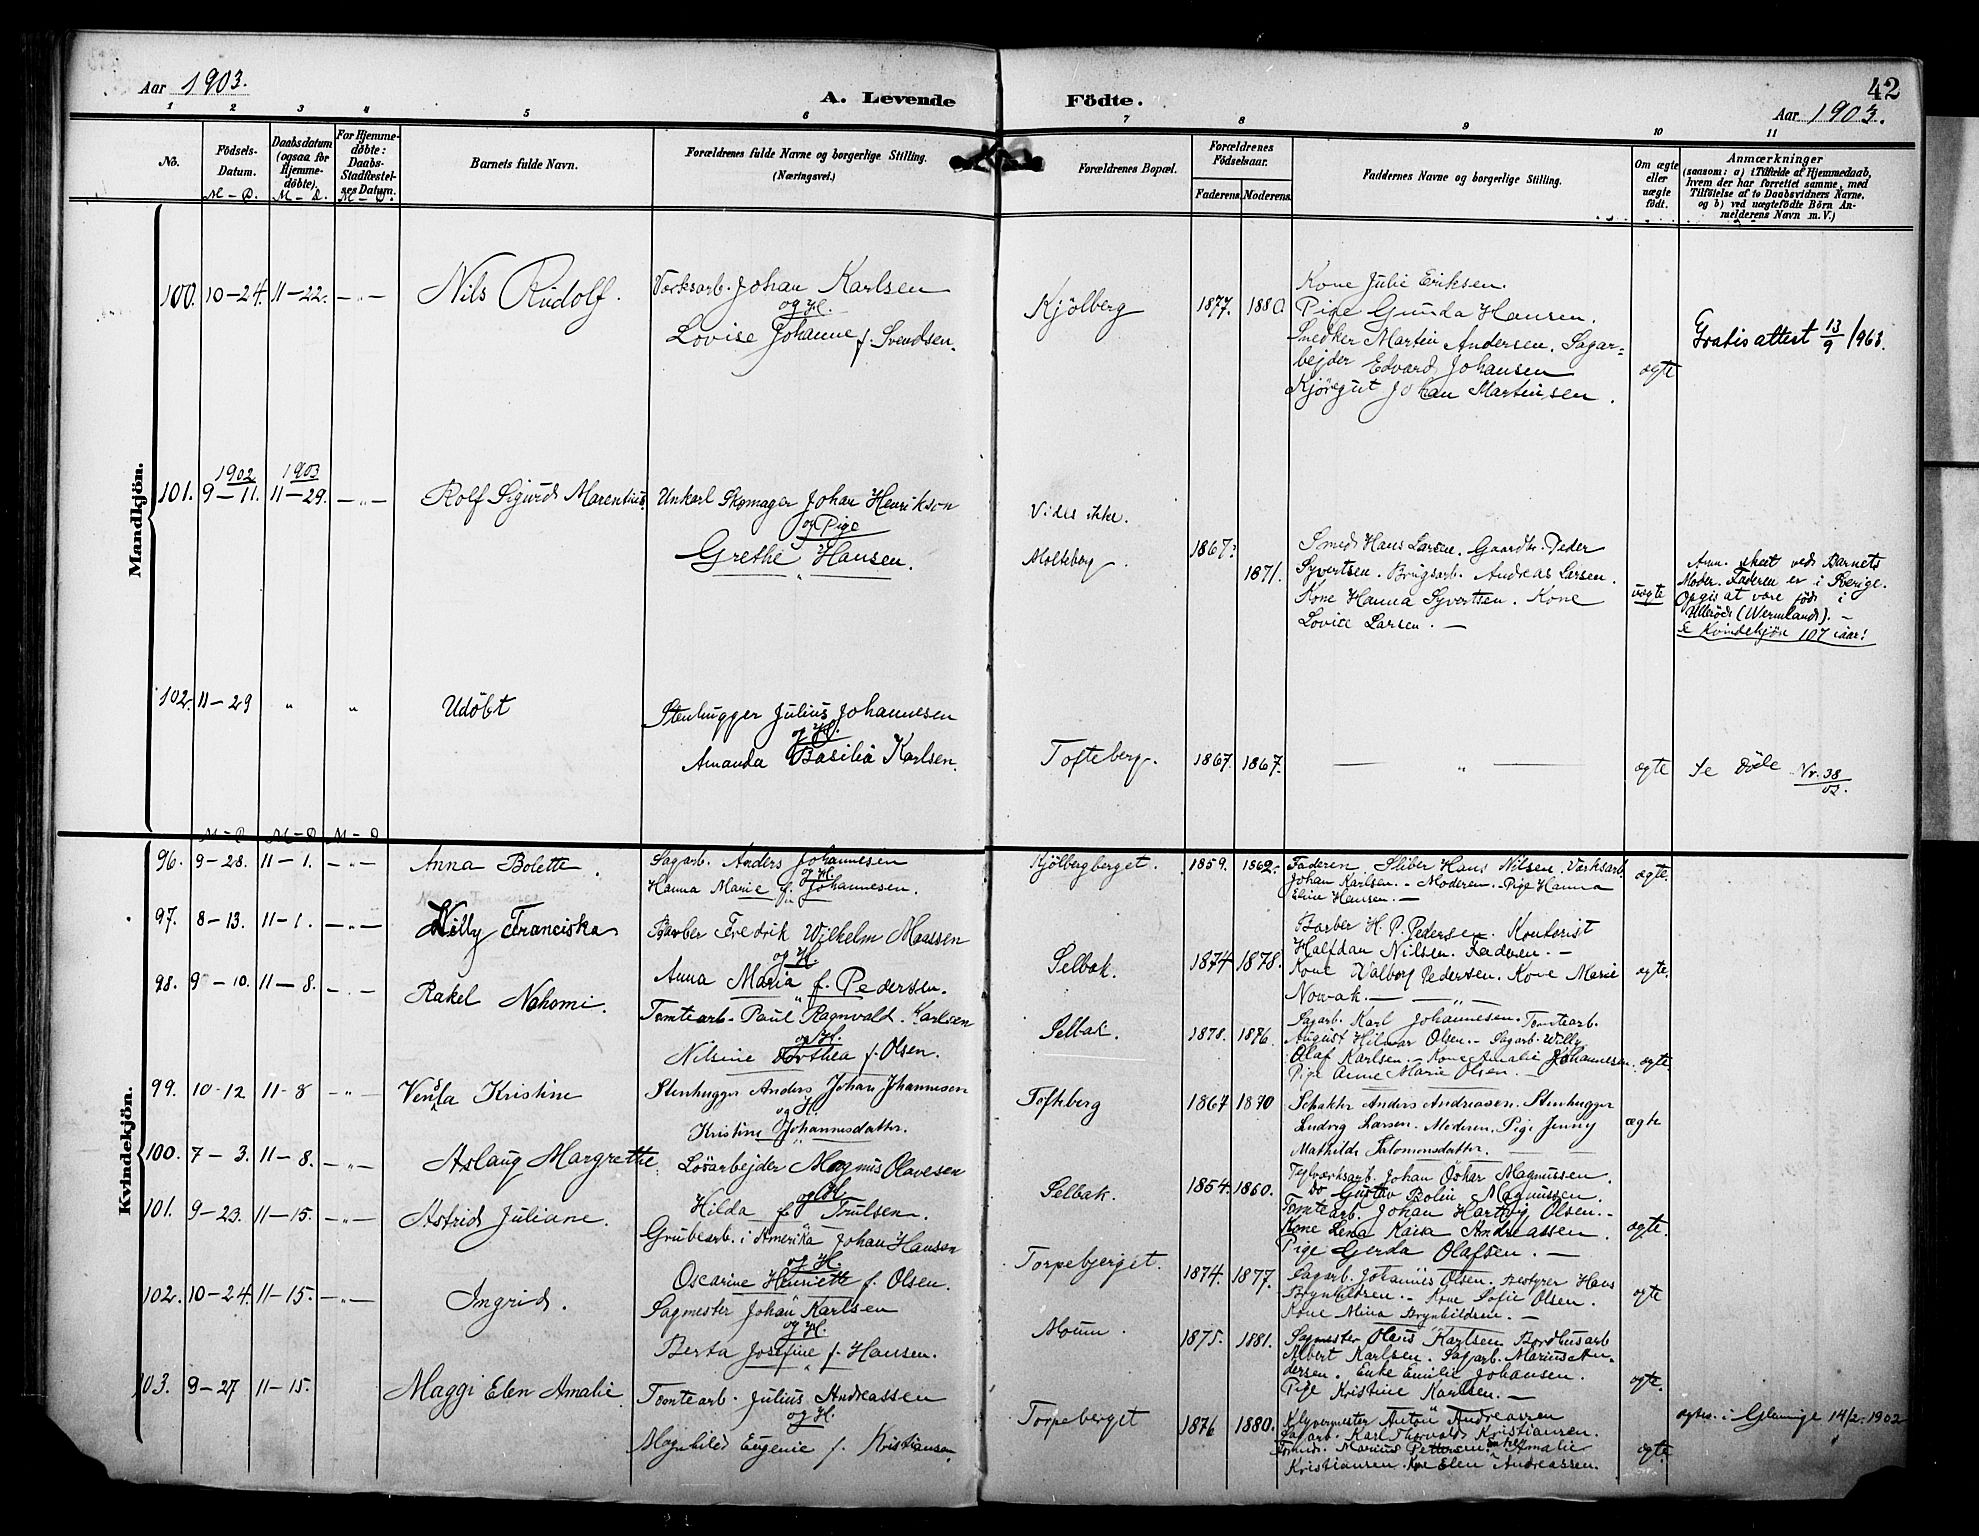 42
Aar 1903.
A. Levende Födte.
Aar 1903.
1 2 3 4 5 6 7 8 9 10 11
No.
Födsels-
Datum.
M – D.
Daabsdatum
(ogsaa for
Hjemme-
döbte).
M – D.
For Hjemme-
döbte:
Daabs-
Stadfæstel-
ses Datum.
M – D.
Barnets fulde Navn.
Forældrenes fulde Navne og borgerlige Stilling.
(Næringsvei.)
Forældrenes Bopæl.
Forældrenes
Födselsaar.
Faderens. Moderens.
Faddernes Navne og borgerlige Stilling.
Om ægte
eller
uægte
födt.
Anmærkninger
(saasom: a) i Tilfælde af Hjemmedaab,
hvem der har forrettet samme, med
Tilföielse af to Daabsvidners Navne,
og b) ved uægtefödte Börn An-
melderens Navn m. V.)
Mandkjön.
100. 10–24. 11–22. – „ –
Nils Rudolf.
Værksarb. Johan Karlsen
og H.
Lovise Johanne f. Svendsen.
Kjölberg
1877. 1880.
Kone Julie Eriksen.
Pige Gunda Hansen.
Snedker Martin Andersen. Sagar=
bejder Edvard Johansen
Kjöregut Johan Martinsen.
ægte
Gratis attest 13/9 1963.
101. 1902 9–11. 1903 11–29. – „ –
Rolf Sigurd Marentius.
Unkarl Skomager Johan Henrikson
og Pige
Grethe Hansen.
Vides ikke.
Molteberg
1867. 1871.
Smed Hans Larsen. Gaardbr. Peder
Syvertsen. Brugsarb. Andreas Larsen.
Kone Hanna Syvertsen. Kone
Lovise Larsen. –
uægte
Anm. skeet ved Barnets
Moder. Faderen er i Sverige.
Opgis at være född i
Ulleröd (Wermland). –
Se Kvindekjön 107 iaar!
102. 11–29 „ „
Udöbt
Stenhugger Julius Johannesen
og H.
Amanda Basilia Karlsen.
Tofteberg.
1867. 1867.
– „ –
ægte
Se Döde Nr. 38/03.
M – D M – D M – D
Kvindekjön.
96. 9–28. 11–1. – „ –
Anna Bolette.
Sagarb. Anders Johannesen
og H.
Hanna Marie f. Johannesen.
Kjölbergberget.
1859. 1862.
Faderen Sliber Hans Nilsen. Værksarb.
Johan Karlsen. – Moderen. – Pige Hanna
Eline Hansen. –
ægte.
97. 8–13. 11–1. – „ –
Willy Franciska
Barber Fredrik Wilhelm Maassen
og H.
Anna Maria f. Pedersen.
Selbak.
1874 1878.
Barber H. P. Pedersen. Kontorist
Halfdan Nilsen. Faderen. –
Kone Valborg Pedersen. Kone Marie
Nowak. –
ægte.
98. 9–10. 11–8. – „ –
Rakel Nahomi.
Tomtearb. Paul Ragnvald Karlsen
og H.
Nilsine Dorthea f. Olsen.
Selbak.
1878. 1876.
Sagarb. Karl Johannesen. Tomtearb.
August Hilmar Olsen. – Sagarb. Willy
Olaf Karlsen. – Kone Amalie Johannesen.
Pige Anne Marie Olsen. –
ægte.
99. 10–12 11–8 – „ –
Vensla Kristine
Stenhugger Anders Johan Johannesen
og H.
Kristine Johannesdatter.
Tofteberg
1867 1870
Schakter Anders Andreasen. Stenhugger
Ludvig Larsen. Moderen. Pige Jenny
Mathilde Salomonsdatter.
ægte
100. 7–3. 11–8. – „ –
Aslaug Margrethe
Lösarbejder Magnus Olavesen
og H.
Hilda f. Trulsen.
Selbak.
1854. 1860.
Teglværksarb. Johan Oskar Magnussen.
do Gustav Bolin Magnussen.
Tomtearb. Johan Hartvig Olsen. –
Kone Lena Kaisa Andreassen.
Pige Gerda Olafsen. –
ægte.
101. 9–23. 11–15. – „ –
Astrid Juliane.
Grubearb. i Amerika Johan Hansen
og H.
Oscarine Henriette f. Olsen.
Torpebjerget.
1874. 1877.
Sagarb. Johannes Olsen. Bestyrer Hans
Brynhildsen. – Kone Sofie Olsen.
Kone Mina Brynhildsen. –
ægte
102. 10–24. 11–15. – „ –
Ingrid.
Sagmester Johan Karlsen
og H.
Berta Josefine f. Hansen.
Moum.
1875. 1881.
Sagmester Olaus Karlsen Bordhusarb
Albert Karlsen. Sagarb. Marius An-
dersen. Enke Emilie Johansen.
Pige Kristine Karlsen. –
ægte.
103. 9–27 11–15.
Maggi Elen Amalie
Tomtearb. Julius Andreassen
og H.
Magnhild Eugenie f. Kristiansen.
Torpeberget
1876 1880.
Klyvermester Anton Andreassen
Sagarb. Karl Thorvald Kristiansen.
Marius Pettersen. Amalie
Kristiansen. Kone Elen Andreassen.
ægte.
i Glemmige 14/2. 1902